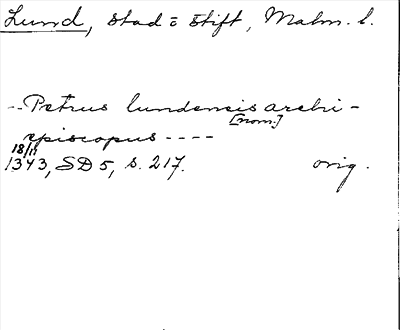 Lund, stad o stift, Malm. l.
-- Petrus lundensis archi-
[nom.]
episcopus ----
18/11
1343, SD 5, s. 217. orig.